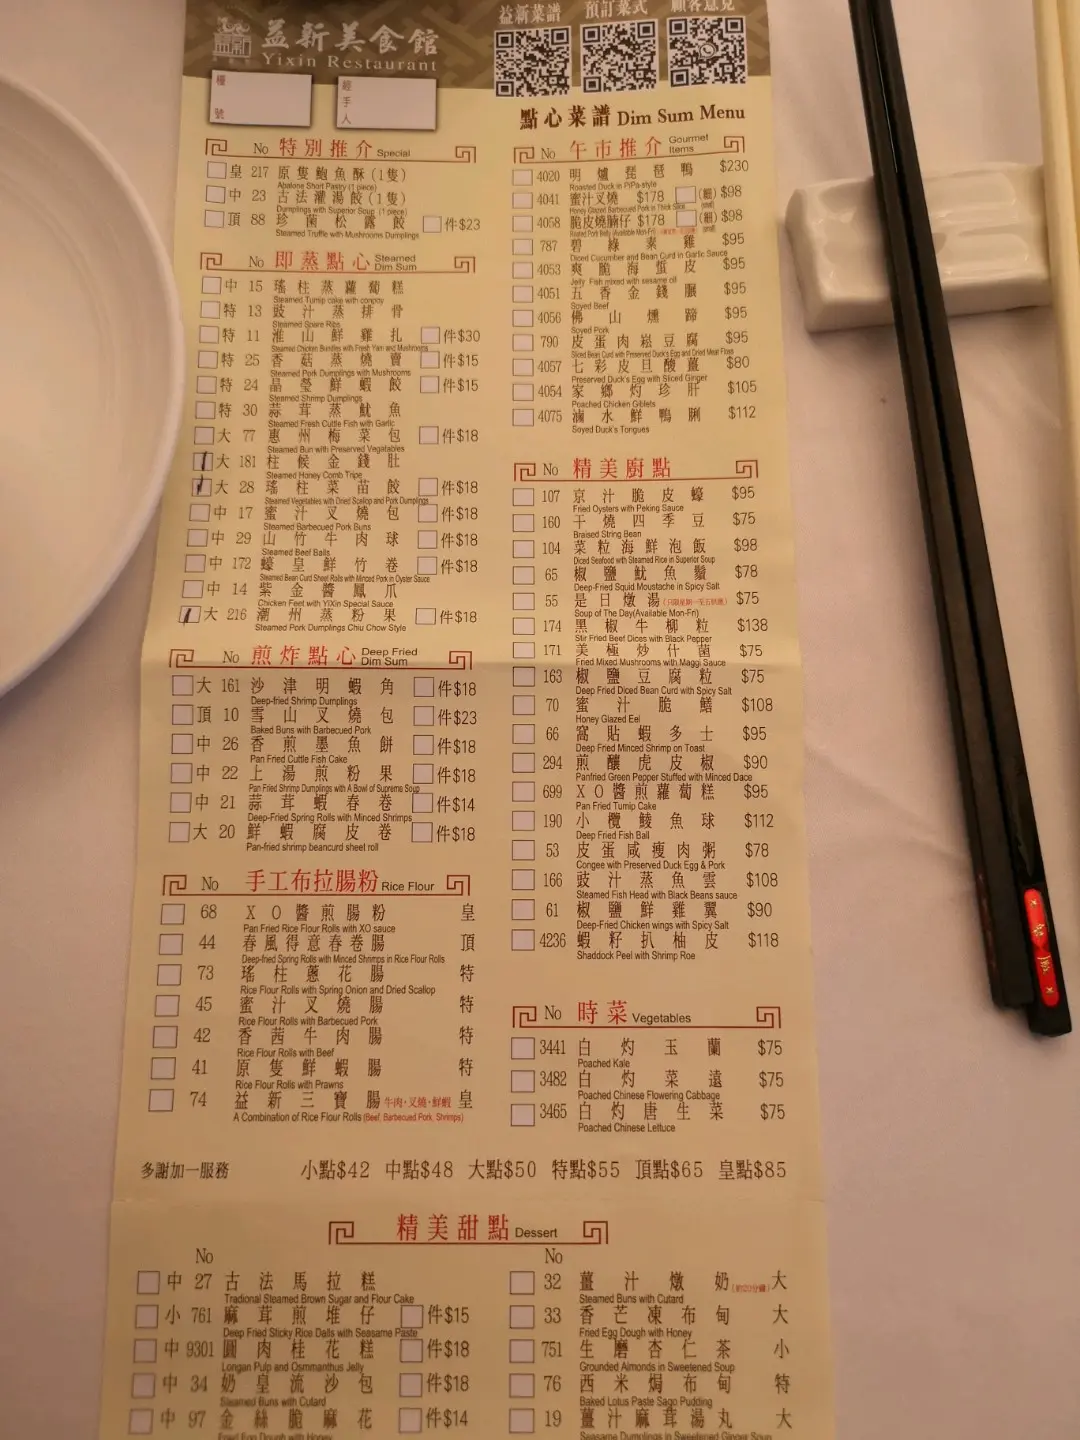 益新菜譜 預訂菜式 顧客意見
益新美食館
Yixin Restaurant
檯號 經手人
點心菜譜 Dim Sum Menu
No 特別推介 Special
皇 217 原隻鮑魚酥(1隻)
Abalone Short Pastry (1 piece)
中 23 古法灌湯餃(1隻)
Dumplings with Superior Soup (1 piece)
頂 88 珍菌松露餃 件$23
Steamed Truffle with Mushrooms Dumplings
No 即蒸點心 Steamed Dim Sum
中 15 瑤柱蒸蘿蔔糕
Steamed Turnip cake with conpoy
特 13 豉汁蒸排骨
Steamed Spare Ribs
特 11 淮山鮮雞扎 件$30
Steamed Chicken Bundles with Fresh Yam and Mushrooms
特 25 香菇蒸燒賣 件$15
Steamed Pork Dumplings with Mushrooms
特 24 晶瑩鮮蝦餃 件$15
Steamed Shrimp Dumplings
特 30 蒜茸蒸魷魚
Steamed Fresh Cuttle Fish with Garlic
大 77 惠州梅菜包 件$18
Steamed Bun with Preserved Vegatables
大 181 柱候金錢肚
Steamed Honey Comb Tripe
大 28 瑤柱菜苗餃 件$18
Steamed Vegetables with Dried Scallop and Pork Dumplings
中 17 蜜汁叉燒包 件$18
Steamed Barbecued Pork Buns
中 29 山竹牛肉球 件$18
Steamed Beef Balls
中 172 蠔皇鮮竹卷 件$18
Steamed Bean Curd Sheet Rolls with Minced Pork in Oyster Sauce
中 14 紫金醬鳳爪
Chicken Feet with YiXin Special Sauce
大 216 潮州蒸粉果 件$18
Steamed Pork Dumplings Chiu Chow Style
No 煎炸點心 Deep Fried Dim Sum
大 161 沙津明蝦角 件$18
Deep-fried Shrimp Dumplings
頂 10 雪山叉燒包 件$23
Baked Buns with Barbecued Pork
中 26 香煎墨魚餅 件$18
Pan Fried Cuttle Fish Cake
中 22 上湯煎粉果 件$18
Pan Fried Shrimp Dumplings with A Bowl of Supreme Soup
中 21 蒜茸蝦春卷 件$14
Deep-Fried Spring Rolls with Minced Shrimps
大 20 鮮蝦腐皮卷 件$18
Pan-fried shrimp beancurd sheet roll
No 手工布拉腸粉 Rice Flour
68 XO醬煎腸粉 皇
Pan Fried Rice Flour Rolls with XO sauce
44 春風得意春卷腸 頂
Deep-fried Spring Rolls with Minced Shrimps in Rice Flour Rolls
73 瑤柱蔥花腸 特
Rice Flour Rolls with Spring Onion and Dried Scallop
45 蜜汁叉燒腸 特
Rice Flour Rolls with Barbecued Pork
42 香茜牛肉腸 特
Rice Flour Rolls with Beef
41 原隻鮮蝦腸 特
Rice Flour Rolls with Prawns
74 益新三寶腸 牛肉·叉燒·鮮蝦 皇
A Combination of Rice Flour Rolls (Beef, Barbecued Pork, Shrimps)
No 午市推介 Gourmet Items
4020 明爐琵琶鴨 $230
Roasted Duck in PiPa-style
4041 蜜汁叉燒 $178 (細) $98
Honey Glazed Barbecued Pork in Thick Slice (small)
4058 脆皮燒腩仔 $178 (細) $98
Roasted Pork Belly (Available Mon-Fri) (small)
787 碧綠素雞 $95
Diced Cucumber and Bean Curd in Garlic Sauce
4053 爽脆海蜇皮 $95
Jelly Fish mixed with sesame oil
4051 五香金錢𦟌 $95
Soyed Beef
4056 佛山燻蹄 $95
Soyed Pork
790 皮蛋肉崧豆腐 $95
Sliced Bean Curd with Preserved Duck's Egg and Dried Meat Floss
4057 七彩皮旦酸薑 $80
Preserved Duck's Egg with Sliced Ginger
4054 家鄉灼珍肝 $105
Poached Chicken Giblets
4075 滷水鮮鴨脷 $112
Soyed Duck's Tongues
No 精美廚點
107 京汁脆皮蠔 $95
Fried Oysters with Peking Sauce
160 干燒四季豆 $75
Braised String Bean
104 菜粒海鮮泡飯 $98
Diced Seafood with Steamed Rice in Superior Soup
65 椒鹽魷魚鬚 $78
Deep-Fried Squid Moustache in Spicy Salt
55 是日燉湯 (只限星期一至五供應) $75
Soup of The Day(Available Mon-Fri)
174 黑椒牛柳粒 $138
Stir Fried Beef Dices with Black Pepper
171 美極炒什菌 $75
Fried Mixed Mushrooms with Maggi Sauce
163 椒鹽豆腐粒 $75
Deep Fried Diced Bean Curd with Spicy Salt
70 蜜汁脆鱔 $108
Honey Glazed Eel
66 窩貼蝦多士 $95
Deep Fried Minced Shrimp on Toast
294 煎釀虎皮椒 $90
Panfried Green Pepper Stuffed with Minced Dace
699 XO醬煎蘿蔔糕 $95
Pan Fried Turnip Cake
190 小欖鯪魚球 $112
Deep Fried Fish Ball
53 皮蛋咸瘦肉粥 $78
Congee with Preserved Duck Egg & Pork
166 豉汁蒸魚雲 $108
Steamed Fish Head with Black Beans sauce
61 椒鹽鮮雞翼 $90
Deep-Fried Chicken wings with Spicy Salt
4236 蝦籽扒柚皮 $118
Shaddock Peel with Shrimp Roe
No 時菜 Vegetables
3441 白灼玉蘭 $75
Poached Kale
3482 白灼菜遠 $75
Poached Chinese Flowering Cabbage
3465 白灼唐生菜 $75
Poached Chinese Lettuce
多謝加一服務 小點$42 中點$48 大點$50 特點$55 頂點$65 皇點$85
精美甜點 Dessert
No
中 27 古法馬拉糕
Tradional Steamed Brown Sugar and Flour Cake
小 761 麻茸煎堆仔 件$15
Deep Fried Sticky Rice Dalls with Seasame Paste
中 9301 圓肉桂花糕 件$18
Longan Pulp and Osmmanthus Jelly
中 34 奶皇流沙包 件$18
Steamed Buns with Cutard
中 97 金絲脆麻花 件$14
Fried Egg Dough with Honey
No
32 薑汁燉奶 (約20分鐘) 大
Steamed Buns with Cutard
33 香芒凍布甸 大
Fried Egg Dough with Honey
751 生磨杏仁茶 小
Grounded Almonds in Sweetened Soup
76 西米焗布甸 特
Baked Lotus Paste Sago Pudding
19 薑汁麻茸湯丸 大
Seasame Dumplings in Sweetened Ginger Soup